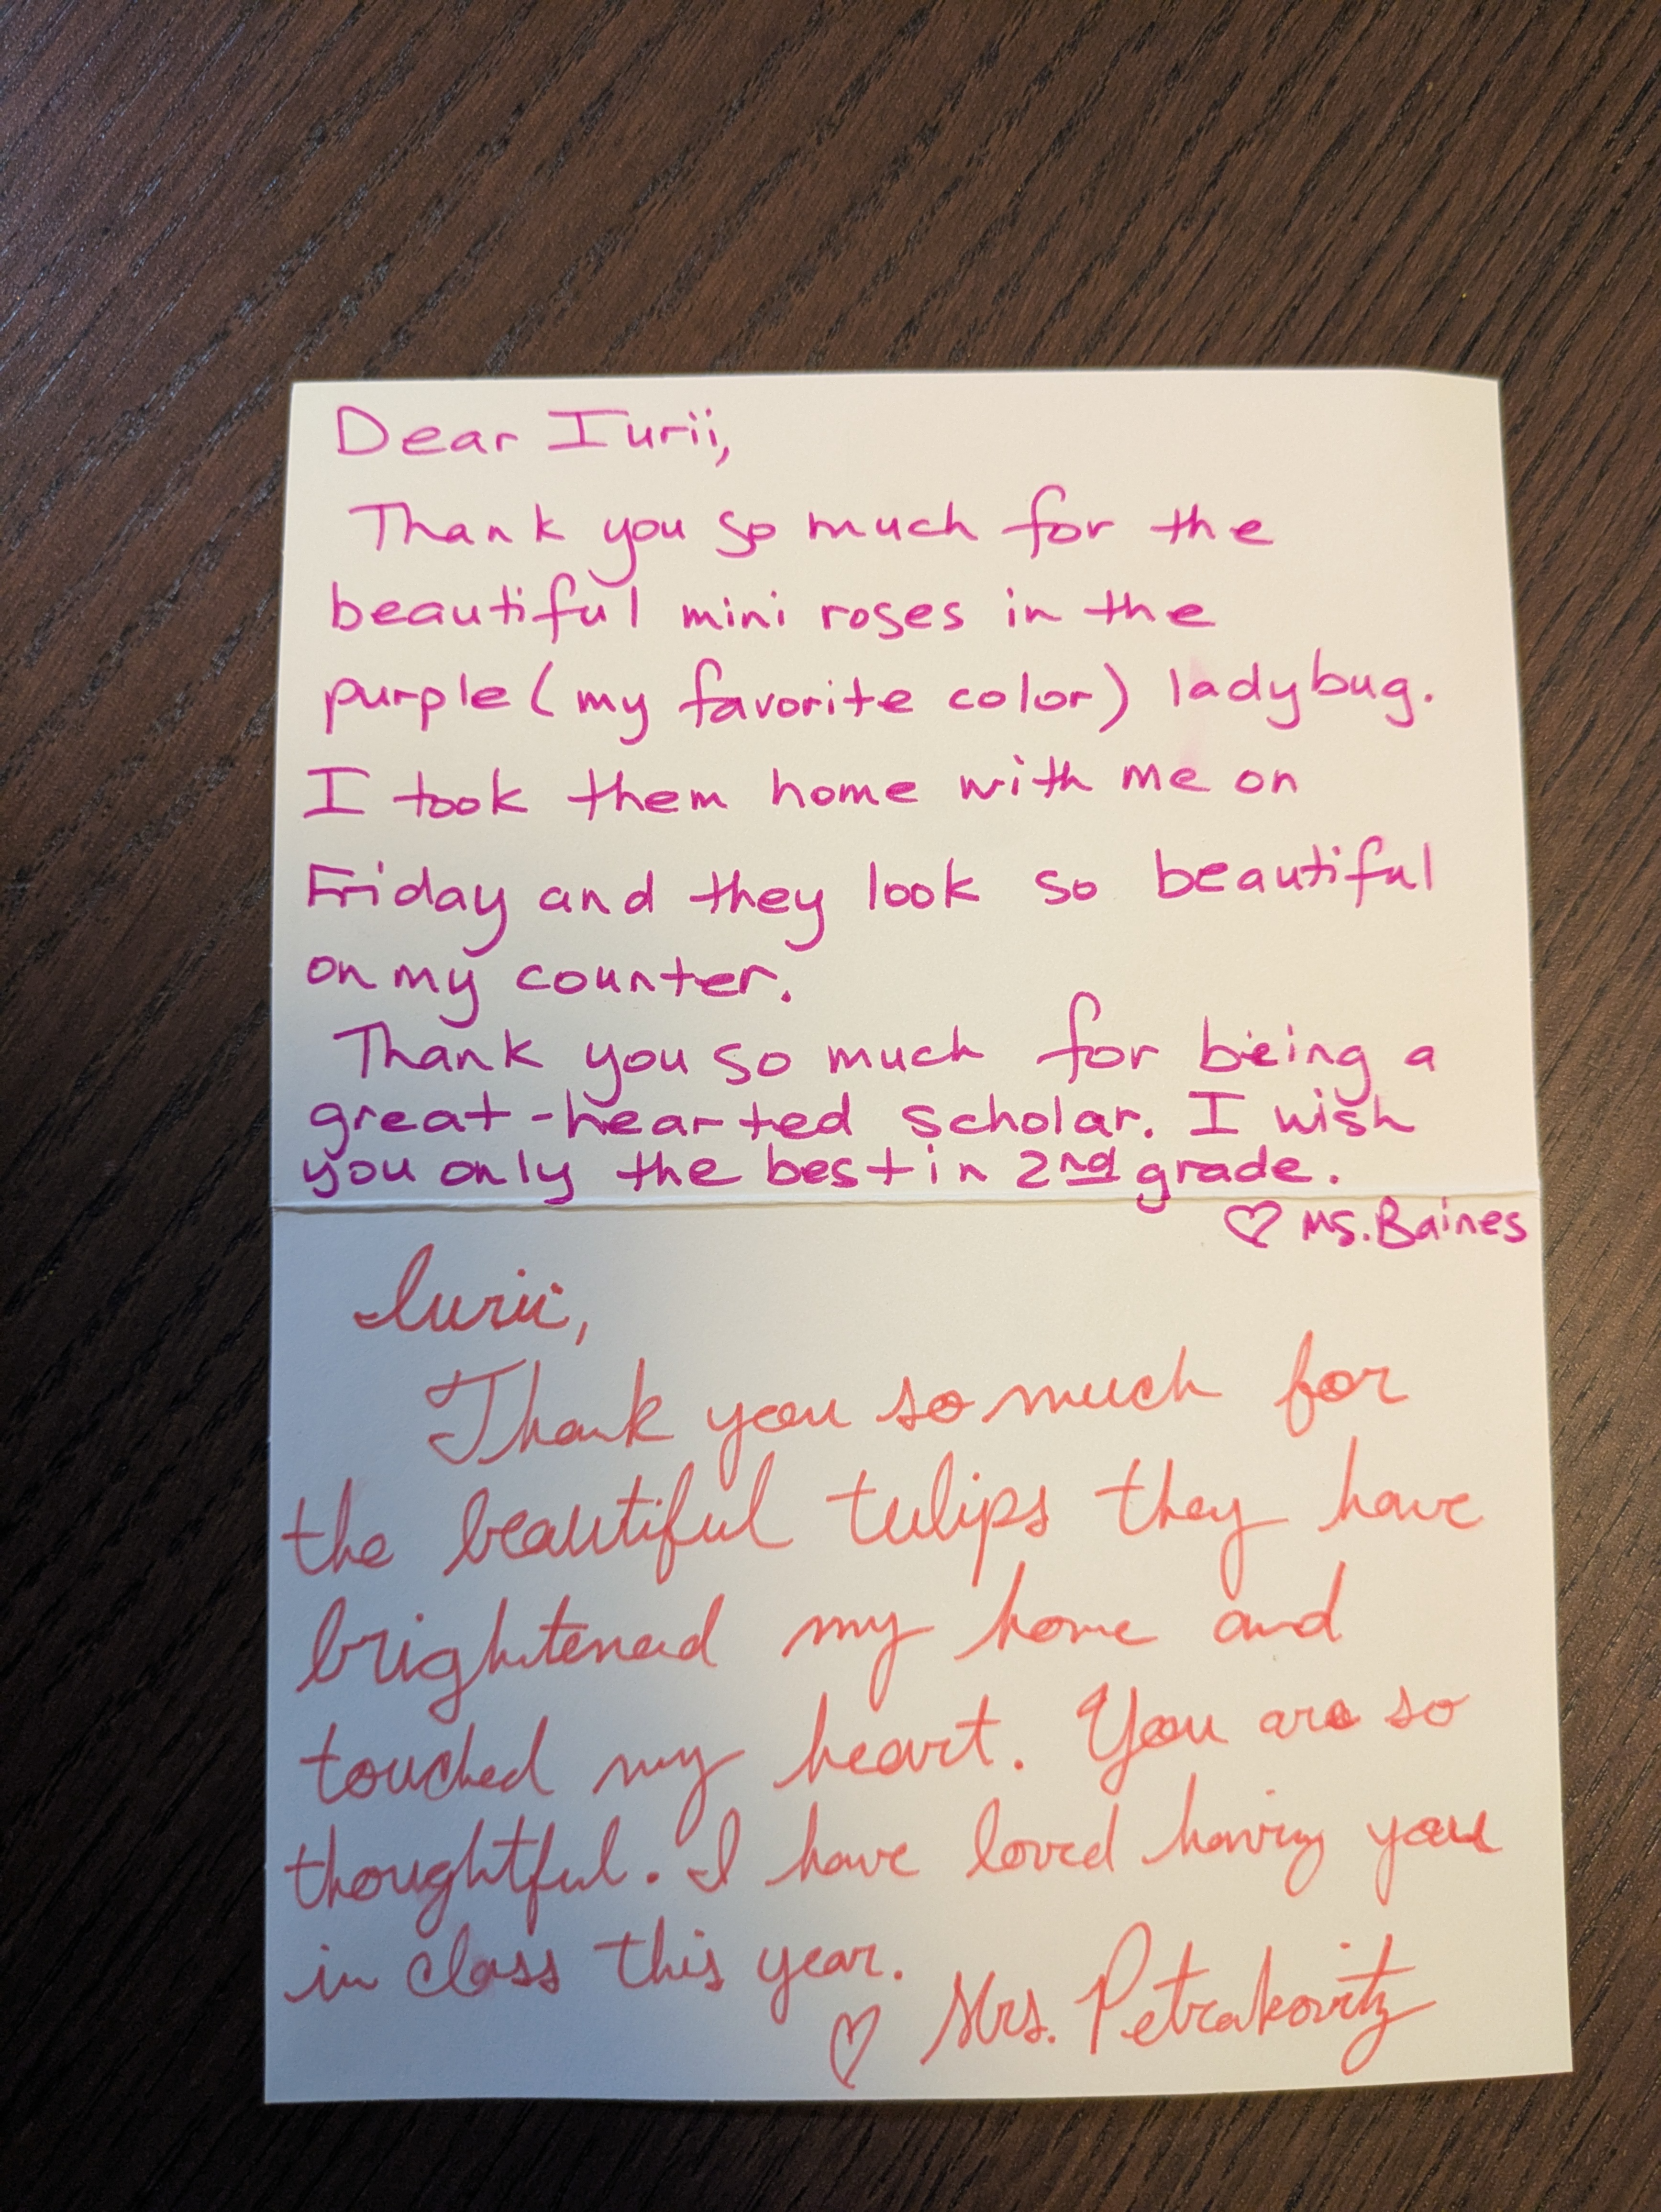 Dear Iurii,
Thank you so much for the
beautiful mini roses in the
purple (my favorite color) ladybug.
I took them home with me on
Friday and they look so beautiful
on my counter.
Thank you so much for being a
great-hearted scholar. I wish
you only the best in 2nd grade.
♡ Ms. Baines
Iurii,
Thank you so much for
the beautiful tulips they have
brightened my home and
touched my heart. You are so
thoughtful. I have loved having you
in class this year.
♡ Mrs. Petrakovitz